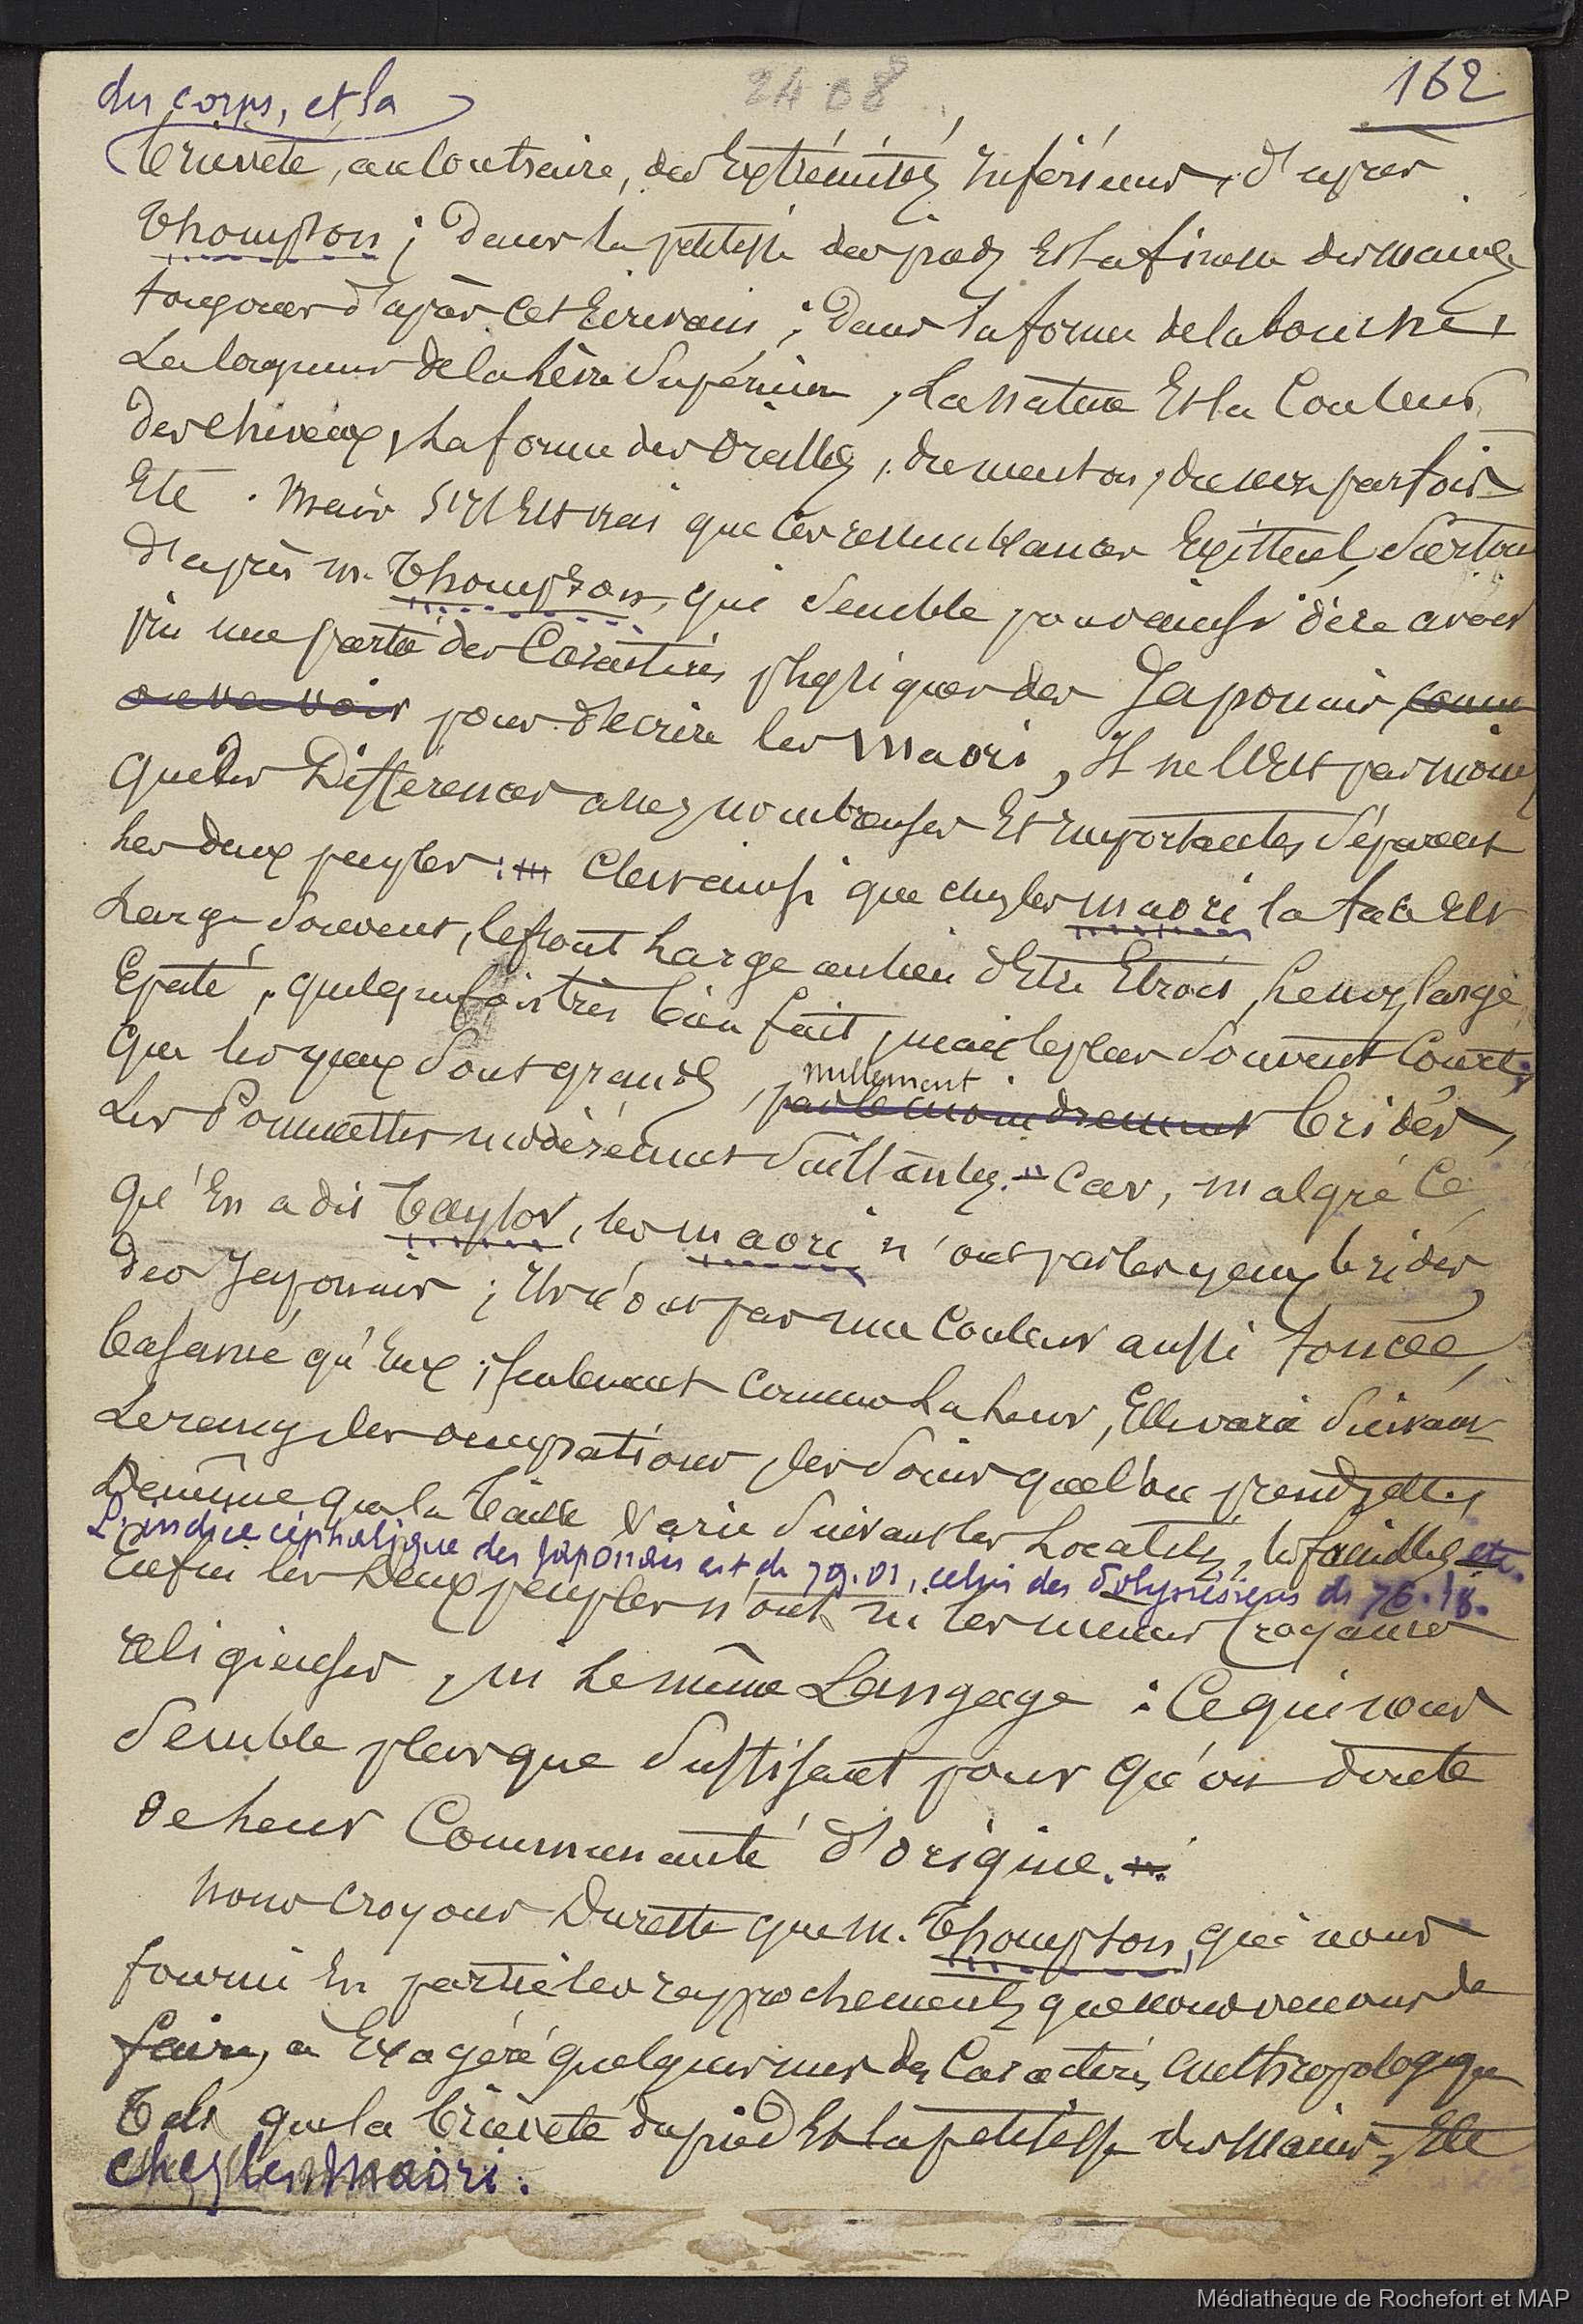 2408
162
du corps, et la
brièveté, au contraire, des Extrémités Inférieures, d'après
Thompson ; Dans la petitesse des pieds Et la finesse des mains,
toujours d'après cet Ecrivain ; Dans la forme de la bouche,
La longueur de la lèvre Supérieure, La nature Et la Couleur
Des cheveux, La forme des Oreilles, du menton, du nez parfois
Etc. Mais S'il Est vrai que ces ressemblances Existent, Surtout
D'après M. Thompson, qui Semble pour ainsi dire avoir
pris une partie des Caractères physiques des Japonais, comme
on va voir pour décrire les Maori, Il ne l'Est pas moins
que des Différences assez nombreuses Et Importantes Séparent
Les deux peuples : C'est ainsi que chez les Maori la face Est
Large Souvent, le front Large au lieu d'Etre Etroit, Le nez large
Epaté, quelquefois très bien fait, mais le plus Souvent Court ;
Que les yeux Sont grands, nullement
pas le moindrement bridés,
Les Pommettes modérément Saillantes. Car, malgré Ce
qu'En a dit Taylor, les Maori n'ont pas les yeux bridés
Des Japonais ; Ils n'ont pas une Couleur aussi foncée,
basanée qu'Eux ; Seulement comme La Leur, Elle varie Suivant
Le rang, les occupations, les Soins que l'on prend, etc,
De même que la taille Varie Suivant les Localités, les familles etc.
L'indice céphalique des Japonais est de 79.01, celui des Polynésiens de 76.18.
Enfin les Deux peuples n'ont ni les mêmes Croyances
religieuses, ni Le même Langage : Ce qui nous
Semble plus que Suffisant pour qu'on doute
De Leur Communauté d'origine.
Nous croyons Du reste que M. Thompson, qui nous
fourni En partie les rapprochements que nous venons de
faire, a Exagéré quelques uns des Caractères Anthropologiques
Tels que la brièveté du pied Et la petitesse des Mains, Etc
chez les Maori.
Médiathèque de Rochefort et MAP